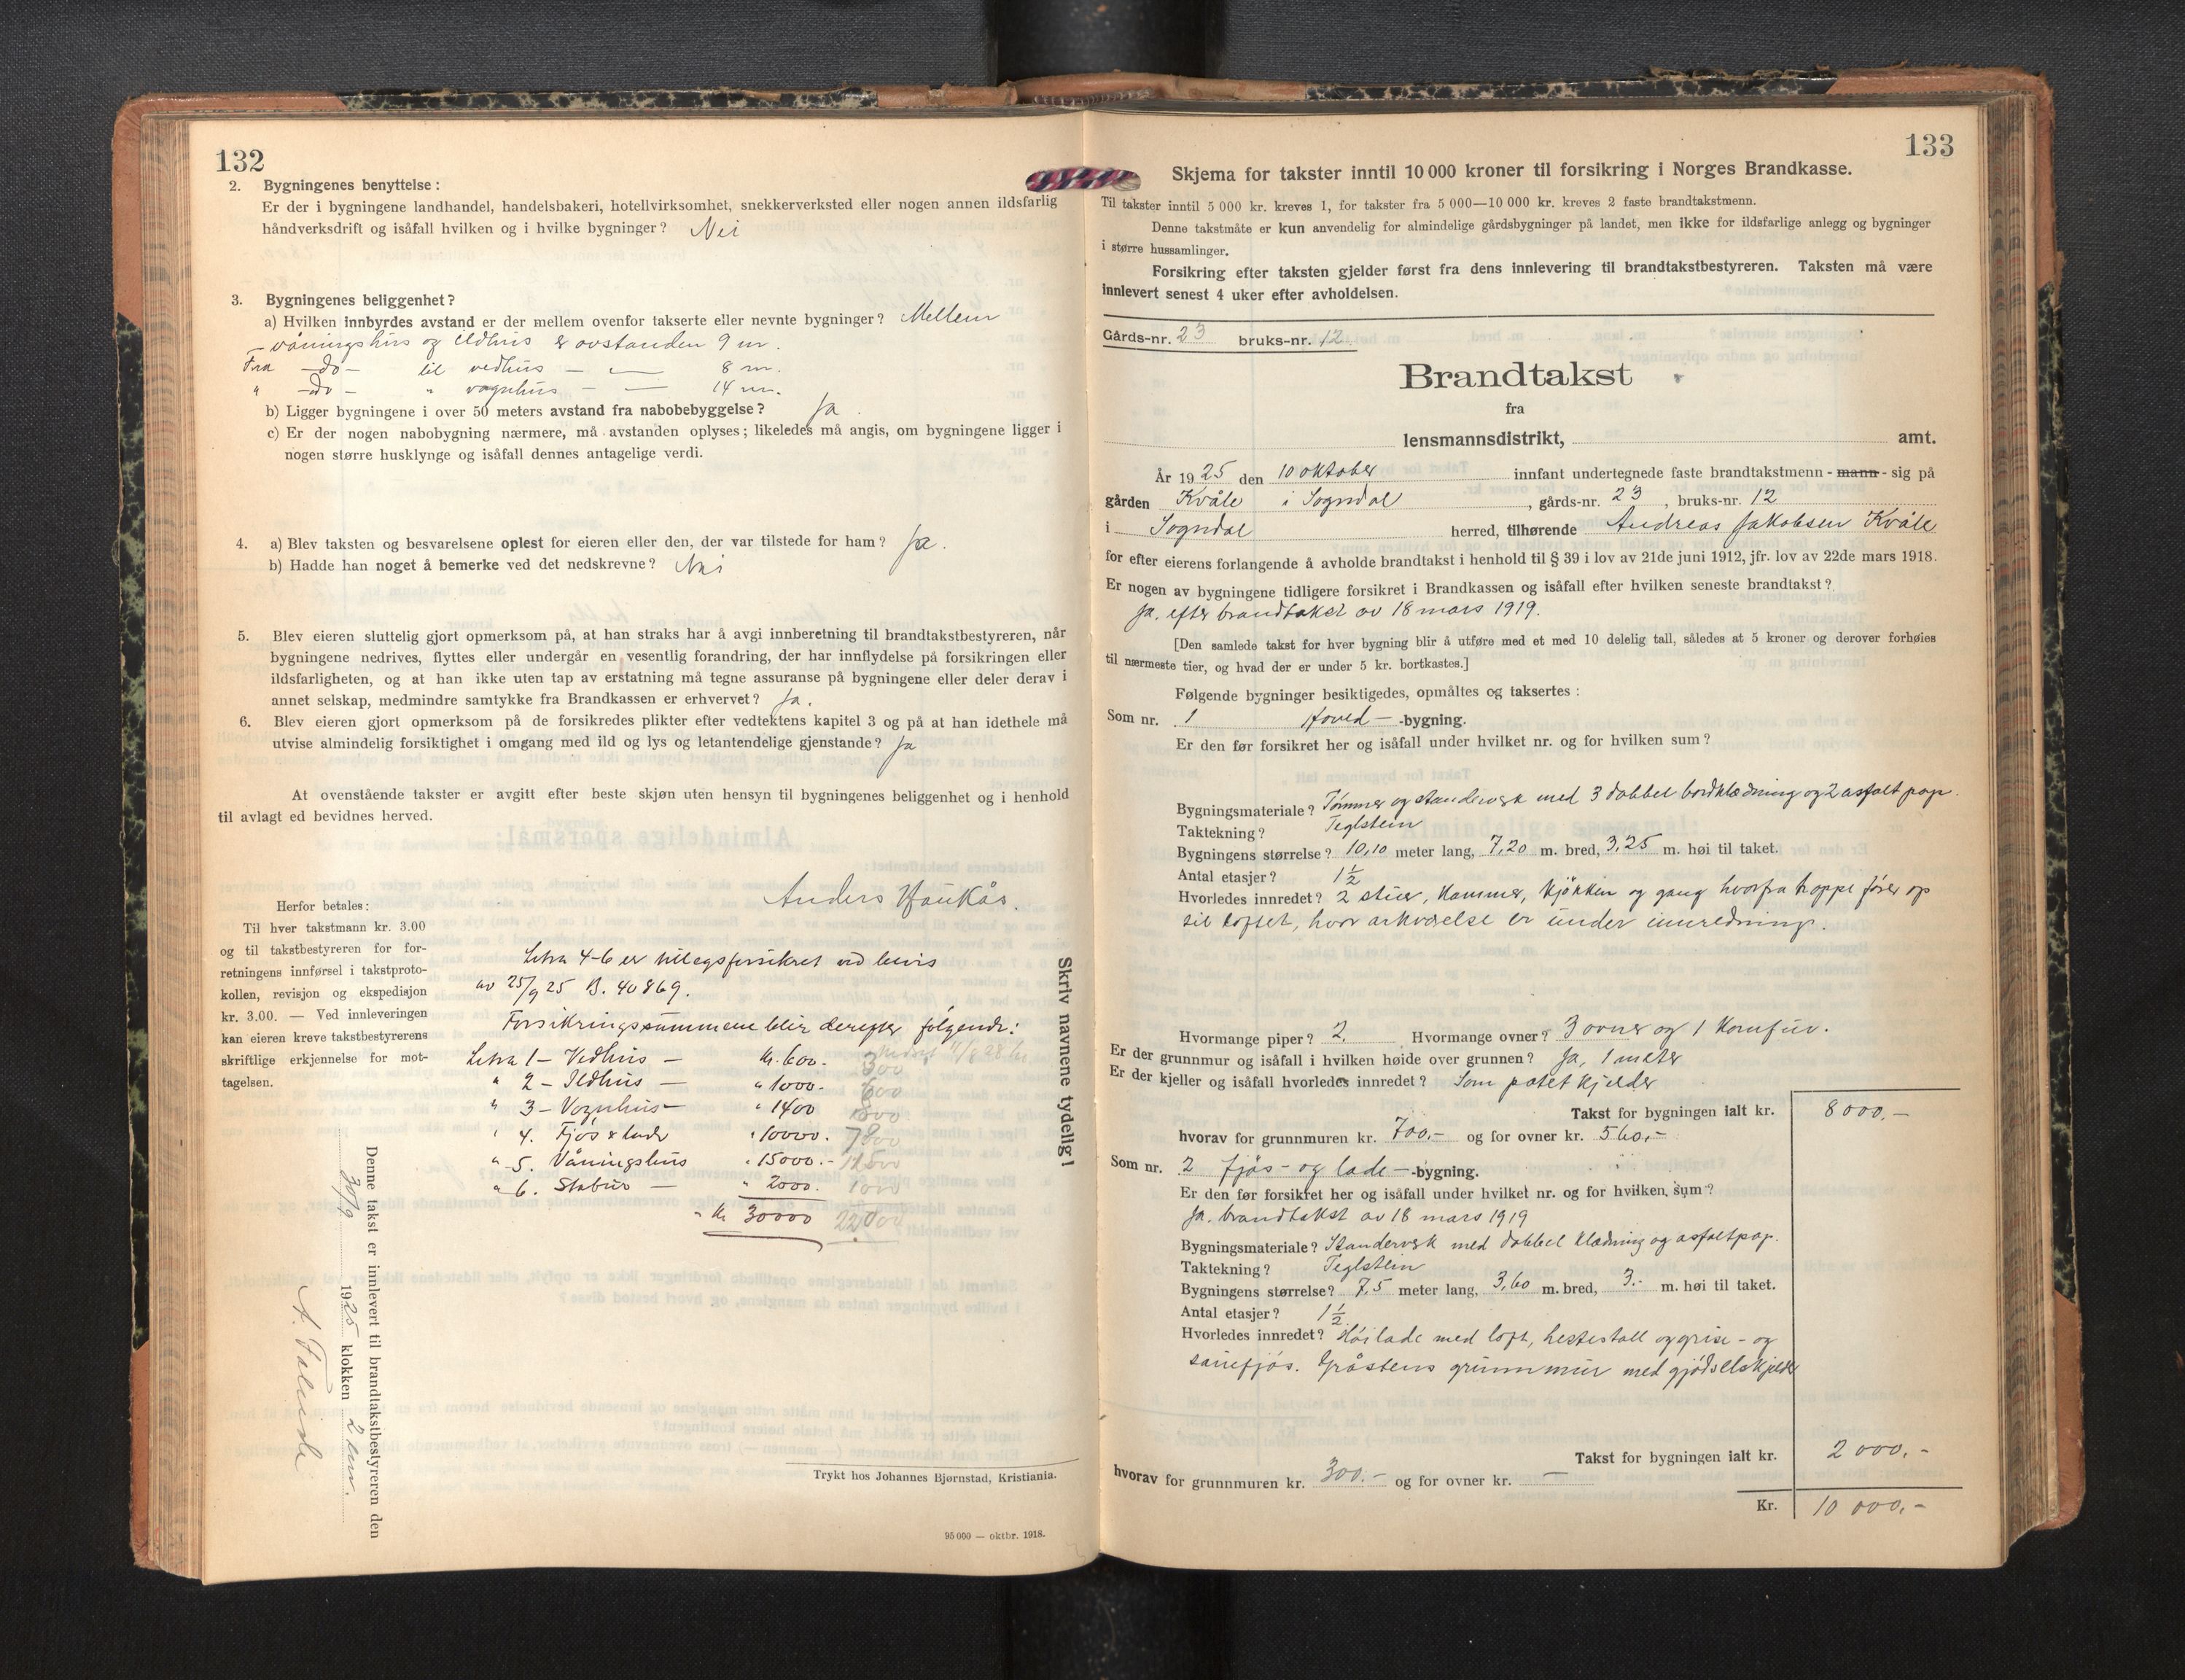 132
2. Bygningenes benyttelse:
Er der i bygningene landhandel, handelsbakeri, hotellvirksomhet, snekkerverksted eller nogen annen ildsfarlig
håndverksdrift og isåfall hvilken og i hvilke bygninger? Nei
3. Bygningenes beliggenhet?
a) Hvilken innbyrdes avstand er der mellem ovenfor takserte eller nevnte bygninger? Mellem
våningshus og ildhus er avstanden 9 m.
Fra -do- til vedhus — — 8 m.
" -do- " vognhus — — 14 m.
b) Ligger bygningene i over 50 meters avstand fra nabobebyggelse? Ja.
c) Er der nogen nabobygning nærmere, må avstanden oplyses; likeledes må angis, om bygningene ligger i
nogen større husklynge og isåfall dennes antagelige verdi.
4. a) Blev taksten og besvarelsene oplest for eieren eller den, der var tilstede for ham? Ja.
b) Hadde han noget å bemerke ved det nedskrevne? Nei
5. Blev eieren sluttelig gjort opmerksom på, at han straks har å avgi innberetning til brandtakstbestyreren, når
bygningene nedrives, flyttes eller undergår en vesentlig forandring, der har innflydelse på forsikringen eller
ildsfarligheten, og at han ikke uten tap av erstatning må tegne assuranse på bygningene eller deler derav i
annet selskap, medmindre samtykke fra Brandkassen er erhvervet? Ja.
6. Blev eieren gjort opmerksom på de forsikredes plikter efter vedtektens kapitel 3 og på at han idethele må
utvise almindelig forsiktighet i omgang med ild og lys og letantendelige gjenstande? Ja
At ovenstående takster er avgitt efter beste skjøn uten hensyn til bygningenes beliggenhet og i henhold
til avlagt ed bevidnes herved.
Anders Haukås.
Herfor betales:
Til hver takstmann kr. 3.00
og til takstbestyreren for for-
retningens innførsel i takstproto-
kollen, revisjon og ekspedisjon
kr. 3.00. — Ved innleveringen
kan eieren kreve takstbestyrerens
skriftlige erkjennelse for mot-
tagelsen.
Litra 4-6 er tillegsforsikret ved bevis
av 25/9 25 B. 40869.
Forsikringssummene blir derefter følgende:
Litra 1 - Vedhus — Kr. 600.- 300
" 2 - Ildhus — " 1000.- 600
" 3 - Vognhus — " 1400 800
" 4. Fjøs & lade " 10000.- 7800
" 5. Våningshus " 15000.- 11500
" 6. Stabur — " 2000.- 1000
Kr 30000 22000
Skriv navnene tydelig!
Denne takst er innlevert til brandtakstbestyreren den
30/9 1925 klokken 2 em.
Trykt hos Johannes Bjørnstad, Kristiania.
95 000 — oktbr. 1918.
133
Skjema for takster inntil 10 000 kroner til forsikring i Norges Brandkasse.
Til takster inntil 5 000 kr. kreves 1, for takster fra 5 000—10 000 kr. kreves 2 faste brandtakstmenn.
Denne takstmåte er kun anvendelig for almindelige gårdsbygninger på landet, men ikke for ildsfarlige anlegg og bygninger
i større hussamlinger.
Forsikring efter taksten gjelder først fra dens innlevering til brandtakstbestyreren. Taksten må være
innlevert senest 4 uker efter avholdelsen.
Gårds-nr. 23 bruks-nr. 12.
Brandtakst
fra
lensmannsdistrikt, amt.
År 1925 den 10 oktober innfant undertegnede faste brandtakstmenn - mann - sig på
gården Kvåle i Sogndal, gårds-nr. 23, bruks-nr. 12
i Sogndal herred, tilhørende Andreas Jakobsen Kvåle
for efter eierens forlangende å avholde brandtakst i henhold til § 39 i lov av 21de juni 1912, jfr. lov av 22de mars 1918.
Er nogen av bygningene tidligere forsikret i Brandkassen og isåfall efter hvilken seneste brandtakst?
Ja. efter brandtakst av 18 mars 1919.
[Den samlede takst for hver bygning blir å utføre med et med 10 delelig tall, således at 5 kroner og derover forhøies
til nærmeste tier, og hvad der er under 5 kr. bortkastes.]
Følgende bygninger besiktigedes, opmåltes og taksertes:
Som nr. 1 Hoved — -bygning.
Er den før forsikret her og isåfall under hvilket nr. og for hvilken sum?
Bygningsmateriale? Tømmer og standerverk med 3 dobbel bordklædning og 2 asfalt pap.
Taktekning? Teglstein
Bygningens størrelse? 10,10 meter lang, 7,20 m. bred, 3,25 m. høi til taket.
Antal etasjer? 1½
Hvorledes innredet? 2 stuer, kammer, kjøkken og gang hvorfra trappe fører op
til loftet, hvor arkværelse er under innredning.
Hvormange piper? 2. Hvormange ovner? 3 ovner og 1 komfur.
Er der grunnmur og isåfall i hvilken høide over grunnen? Ja, 1 meter
Er der kjeller og isåfall hvorledes innredet? Som potet kjelder
Takst for bygningen ialt kr. 8 000,-
hvorav for grunnmuren kr. 700,- og for ovner kr. 560,-
Som nr. 2 fjøs- og lade — -bygning.
Er den før forsikret her og isåfall under hvilket nr. og for hvilken sum?
Ja. brandtakst av 18 mars 1919
Bygningsmateriale? Standerverk med dobbel klædning og asfaltpap.
Taktekning? Teglstein
Bygningens størrelse? 7,5 meter lang, 3,60 m. bred, 3.- m. høi til taket.
Antal etasjer? 1½
Hvorledes innredet? Høilade med loft, hestestall og grise- og
sauefjøs. Gråstens grunnmur med gjødselskjelder
Takst for bygningen ialt kr. 2 000,-
hvorav for grunnmuren kr. 300.- og for ovner kr. —
Kr. 10 000,-